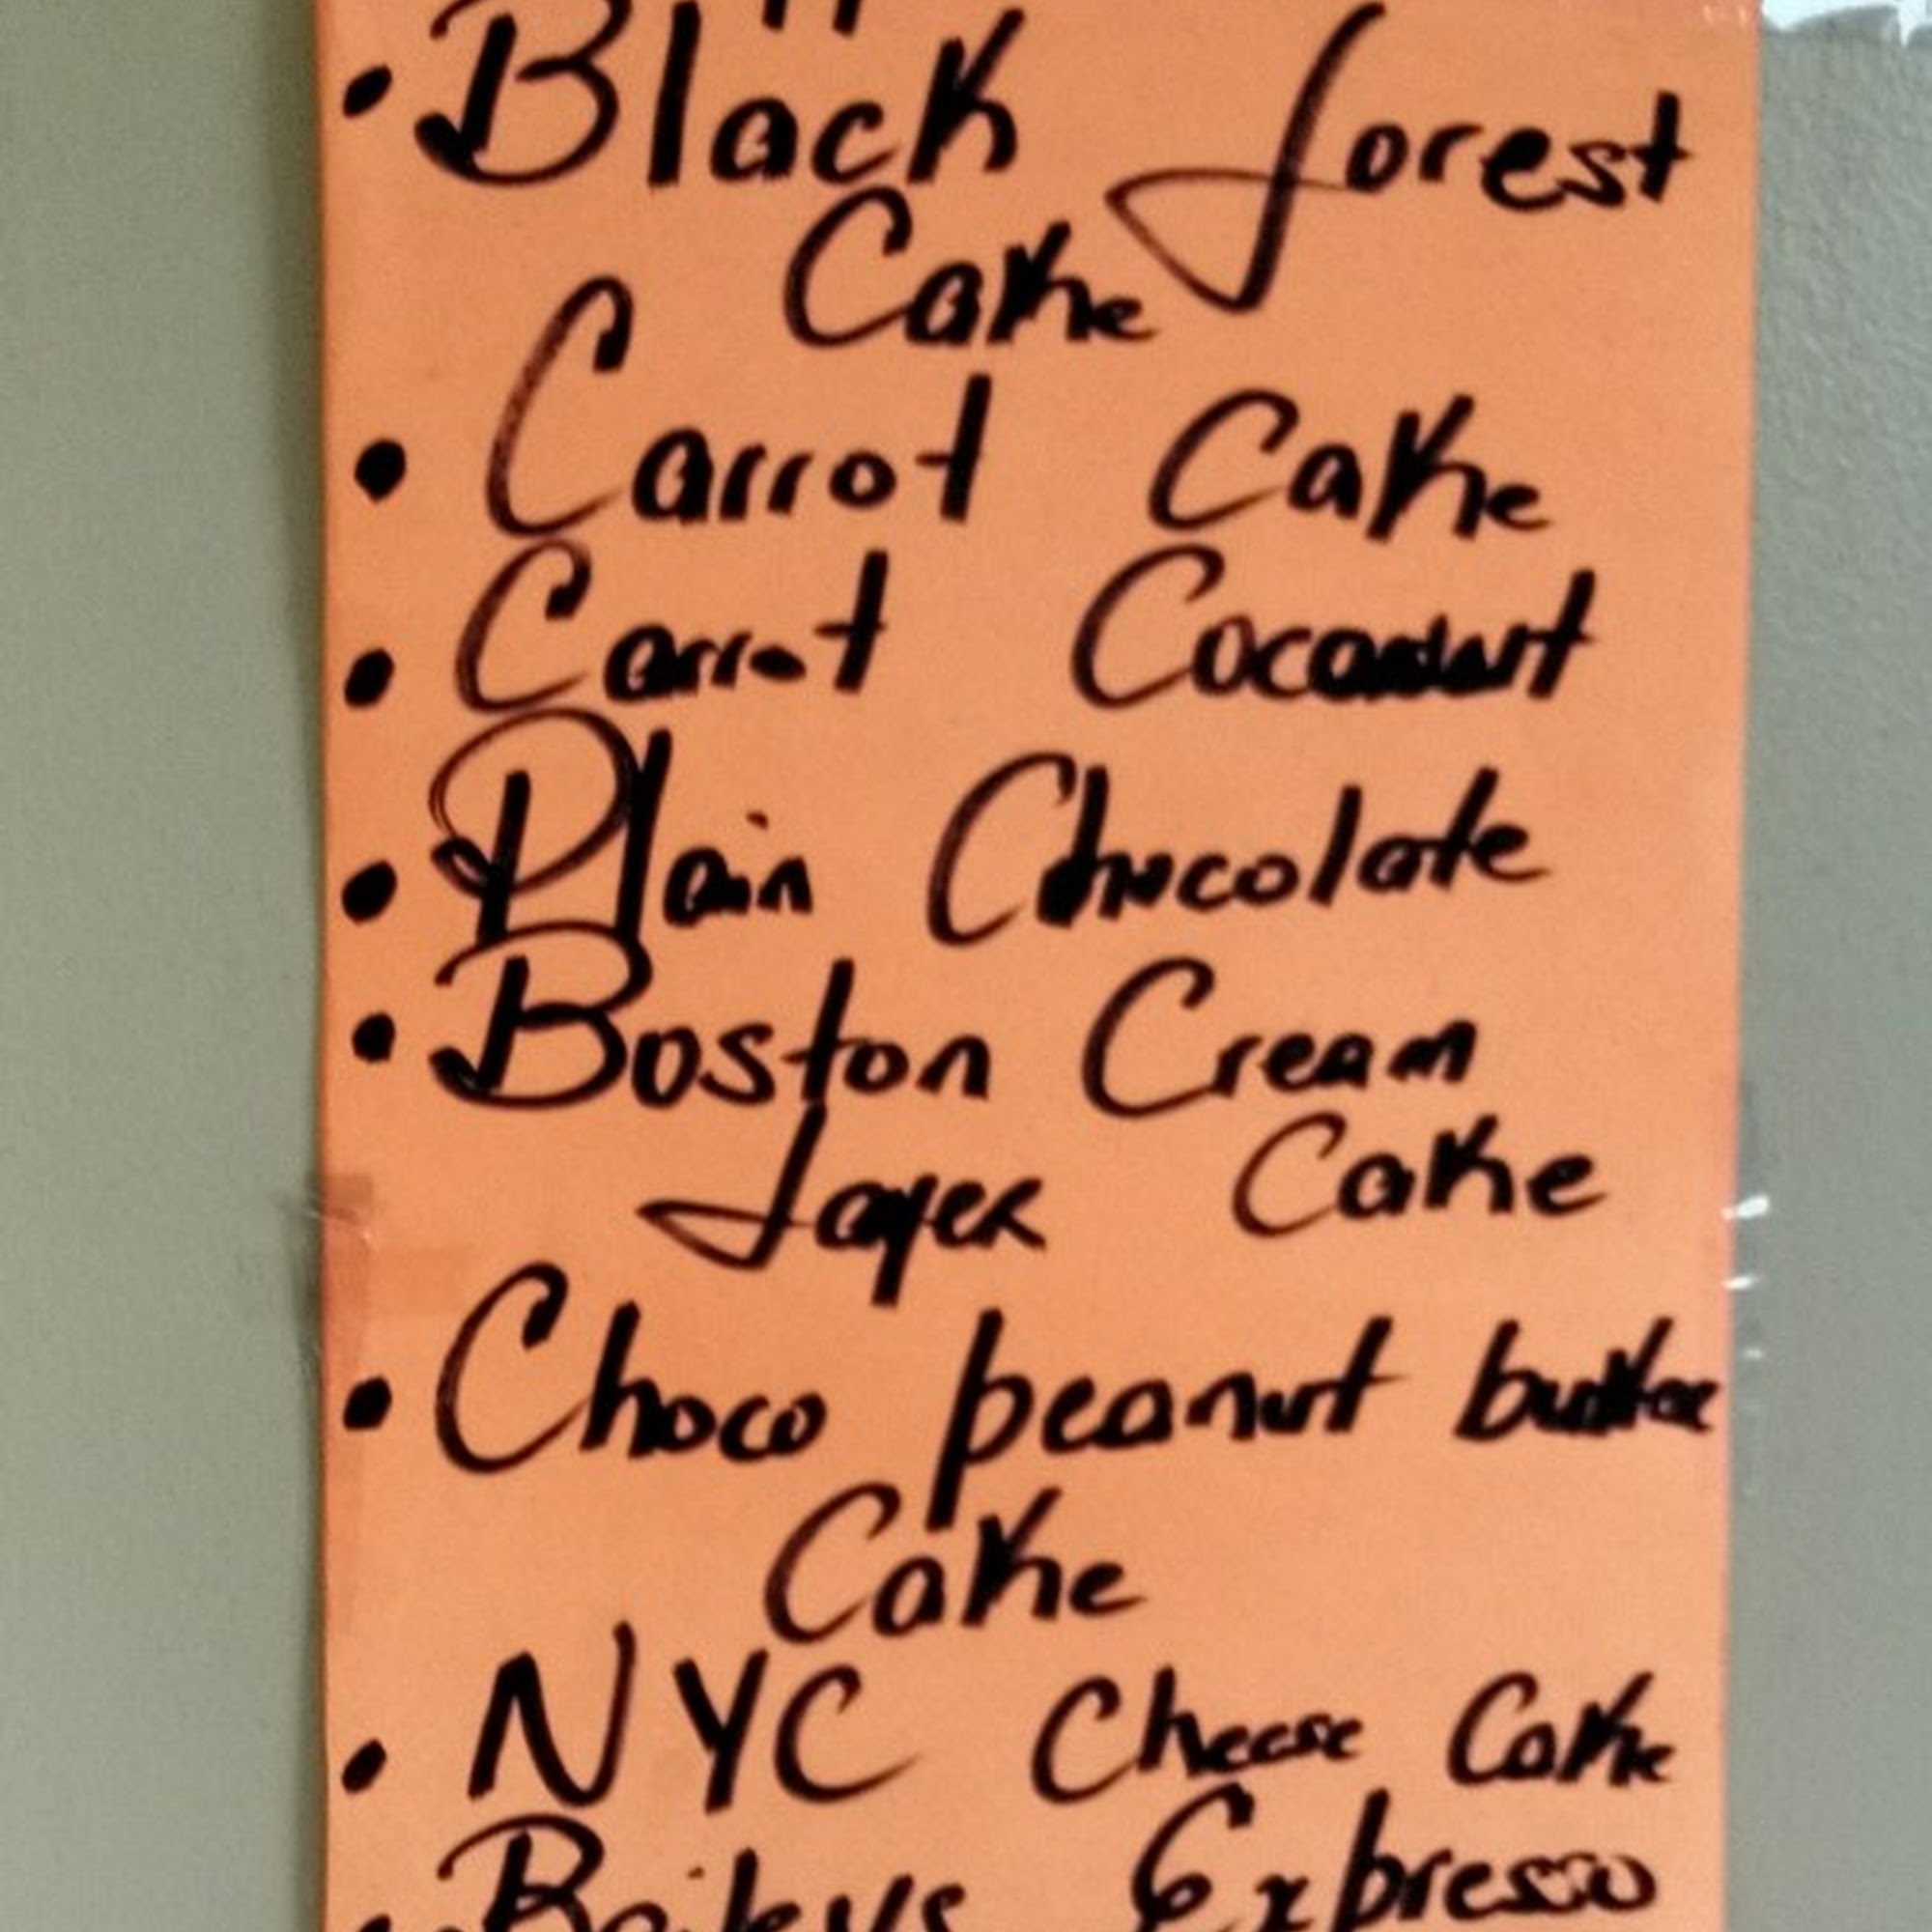 • Black forest
Cake
• Carrot Cake
• Carrot Coconut
• Plain Chocolate
• Boston Cream
Layer Cake
• Choco peanut butter
Cake
• NYC Cheese Cake
• Baileys Expresso